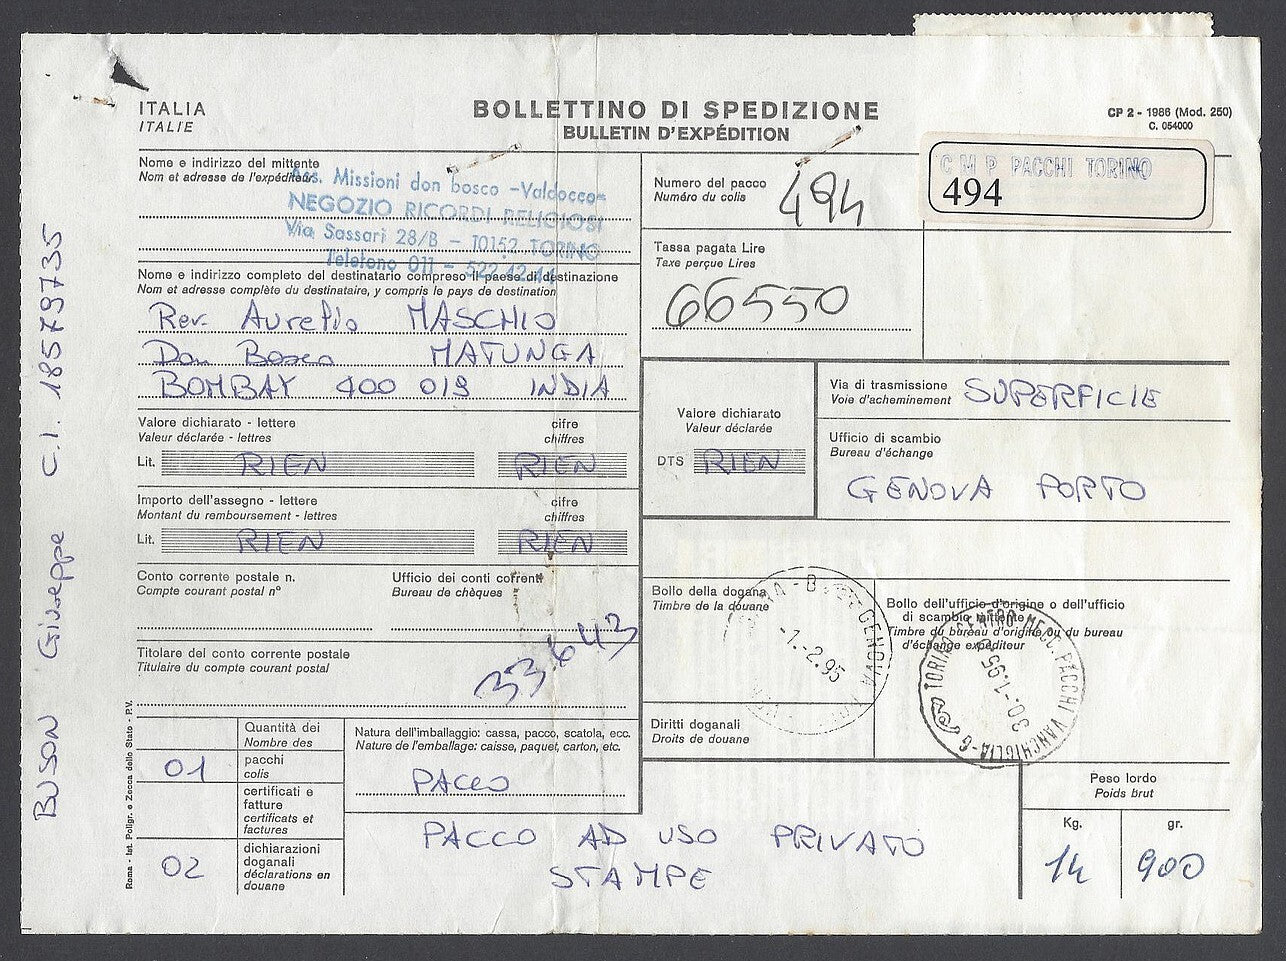 ITALIA
ITALIE
BOLLETTINO DI SPEDIZIONE
BULLETIN D'EXPÉDITION
CP 2 - 1986 (Mod. 250)
C. 054000
Nome e indirizzo del mittente
Nom et adresse de l'expéditeur
Ass. Missioni don bosco -Valdocco-
NEGOZIO RICORDI RELIGIOSI
Via Sassari 28/B - 10152 TORINO
Telefono 011 - 522.42.44
Numero del pacco
Numéro du colis
494
C M P PACCHI TORINO
494
Tassa pagata Lire
Taxe perçue Lires
66550
Nome e indirizzo completo del destinatario compreso il paese di destinazione
Nom et adresse complète du destinataire, y compris le pays de destination
Rev. Aurelio MASCHIO
Don Bosco MATUNGA
BOMBAY 400 019 INDIA
Valore dichiarato - lettere
Valeur déclarée - lettres
cifre
chiffres
Lit. RIEN RIEN
Importo dell'assegno - lettere
Montant du remboursement - lettres
cifre
chiffres
Lit. RIEN RIEN
Valore dichiarato
Valeur déclarée
DTS RIEN
Via di trasmissione
Voie d'acheminement
SUPERFICIE
Ufficio di scambio
Bureau d'échange
GENOVA PORTO
Conto corrente postale n.
Compte courant postal n°
Ufficio dei conti correnti
Bureau de chèques
Titolare del conto corrente postale
Titulaire du compte courant postal
33643
Bollo della dogana
Timbre de la douane
GENOVA
-1.-2.95
Bollo dell'ufficio d'origine o dell'ufficio
di scambio mittente
Timbre du bureau d'origine ou du bureau
d'échange expéditeur
TORINO CENTRO MECC. PACCHI VANCHIGLIA-6
30-1.95
Diritti doganali
Droits de douane
01
02
Quantità dei
Nombre des
pacchi
colis
certificati e
fatture
certificats et
factures
dichiarazioni
doganali
déclarations en
douane
Natura dell'imballaggio: cassa, pacco, scatola, ecc.
Nature de l'emballage: caisse, paquet, carton, etc.
PACCO
PACCO AD USO PRIVATO
STAMPE
Peso lordo
Poids brut
Kg.
gr.
14
900
Roma - Ist. Poligr. e Zecca dello Stato - P.V.
BUSON Giuseppe C.I. 18579735